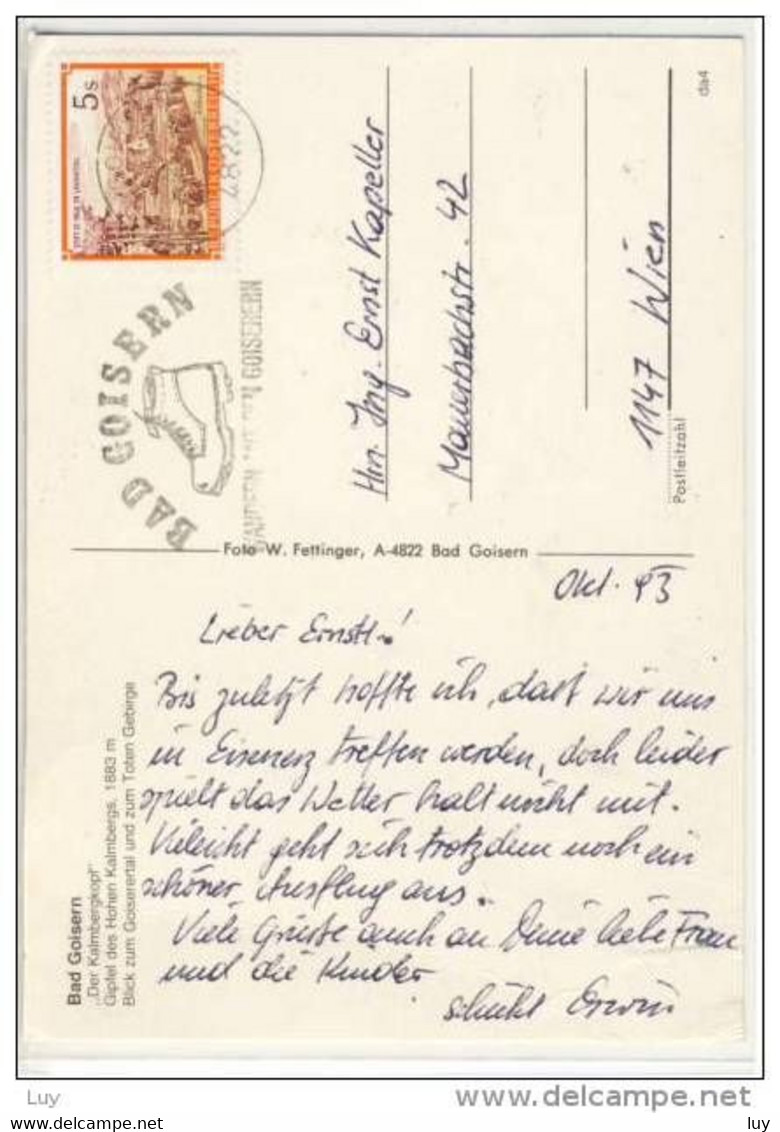 5s
4822
BAD GOISERN
WANDERN MIT DEN GOISERERN
da4
Hrn. Ing. Ernst Kapeller
Mauerbachstr. 42
1147 Wien
Postleitzahl
Foto W. Fettinger, A-4822 Bad Goisern
Okt. 93
Lieber Ernstl!
Bis zuletzt hoffte ich, daß wir uns
in Eisenerz treffen werden, doch leider
spielt das Wetter halt nicht mit.
Vieleicht geht sich trotzdem noch ein
schöner Ausflug aus.
Viele Grüsse auch an Deine liebe Frau
und die Kinder
schickt Erwin
Bad Goisern
„Der Kalmbergkopf"
Gipfel des Hohen Kalmbergs, 1883 m
Blick zum Goiserertal und zum Toten Gebirge
Luy
delcampe.net
www.delcampe.net
luy